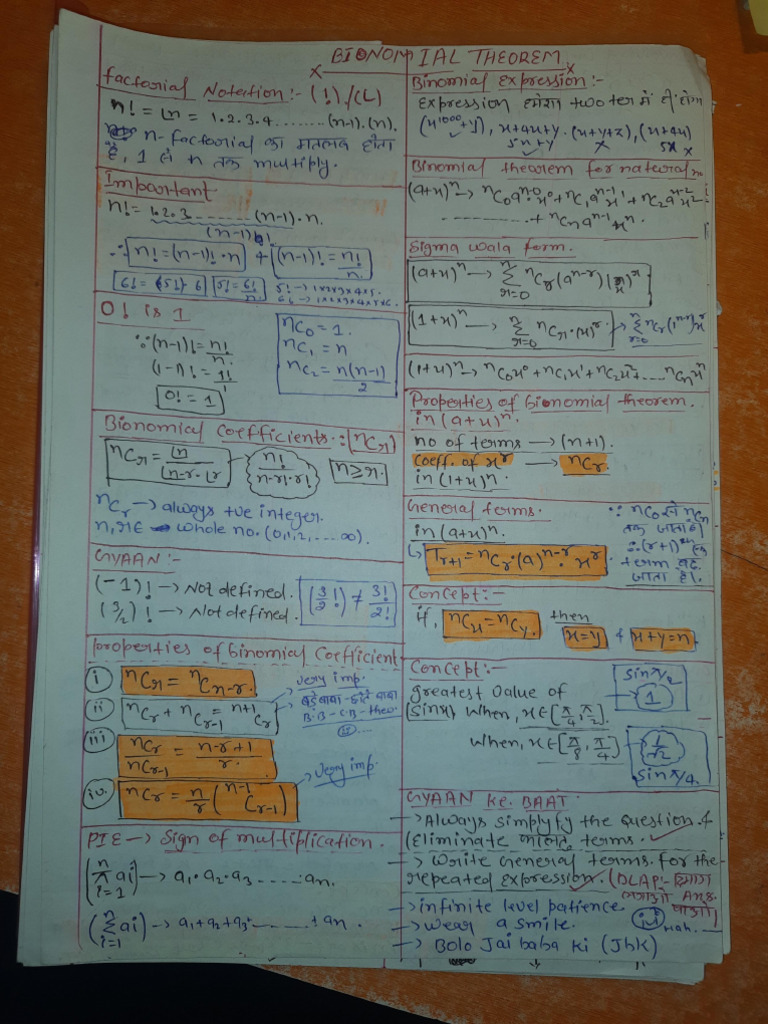 BIONOMIAL THEOREM
Factorial Notation:- (!)/(L)
n! = Ln = 1.2.3.4........(n-1).(n).
n-factorial का मतलब होता
है, 1 से n तक multiply.
Important
n! = 1.2.3........(n-1).n.
(n-1)!
∴ n! = (n-1)!.n + (n-1)! = n!/n.
6! = (5!).6 5! = 6!/n. 5! → 1x2x3x4x5.
6! → 1x2x3x4x5x6.
0! is 1
∵ (n-1)! = n!/n.
(1-1)! = 1!/1
0! = 1
nC0 = 1.
nC1 = n
nC2 = n(n-1)/2
Bionomial Coefficients :(nCr)
nCr = Ln/Ln-r.Lr n!/(n-r)!.r! n≥r.
nCr → always +ve integer.
n,r∈ whole no. (0,1,2,.....∞).
GYAAN:-
(-1)! → Not defined.
(3/2)! → Not defined.
(3/2!) ≠ 3!/2!
properties of Binomial Coefficient
i nCr = nCn-r.
very imp.
ii nCr + nCr-1 = n+1Cr
B.B-C.B-theo.
iii nCr/nCr-1 = n-r+1/r.
iv. nCr = n/r (n-1Cr-1)
Very imp.
PIE → Sign of multiplication.
(n π ai i=1) → a1.a2.a3.....an.
(n Σ ai i=1) → a1+a2+a3+........+an.
Binomial Expression:-
Expression हमेशा two term में ही होगा
(x1000+y), x+4x+y.(x+y+z), (x+4x)
5x+y x 5x x
Binomial theorem for natural n
(a+x)n → nC0 an-0 x0 + nC1 an-1 x1 + nC2 an-2 x2
............+ nCn an-n xn.
Sigma wala form.
(a+x)n → n Σ r=0 nCr(an-r)(x)r
(1+x)n → n Σ r=0 nCr.(x)r → n Σ r=0 nCr(1n-r)xr
(1+x)n → nC0x0+nC1x1+nC2x2+.....nCnxn
Properties of bionomial theorem.
in (a+x)n.
no of terms → (n+1).
Coeff. of xr → nCr.
in (1+x)n.
General terms.
in (a+x)n.
Tr+1 = nCr.(a)n-r.xr.
∵ nC0 से nCn
तक जाता है।
∴ (r+1)th तक
term बढ़
जाता है।
Concept:-
if, nCx = nCy. then
x=y & x+y=n
Concept:-
greatest Value of
(sinx) When, x∈[π/4,π/2].
When, x∈[π/8,π/4]
sinπ/2
1
1/√2
sinπ/4
GYAAN Ke BAAT
→ Always simplyfy the Question &
(Eliminate फालतू terms.
→ Write General terms for the
repeated Expression. (DLAP:- दिमाग
लगाओ Ans.
पाओ)
→ infinite level patience.
→ Wear a smile. Hah.
→ Bolo Jai baba ki (Jbk)